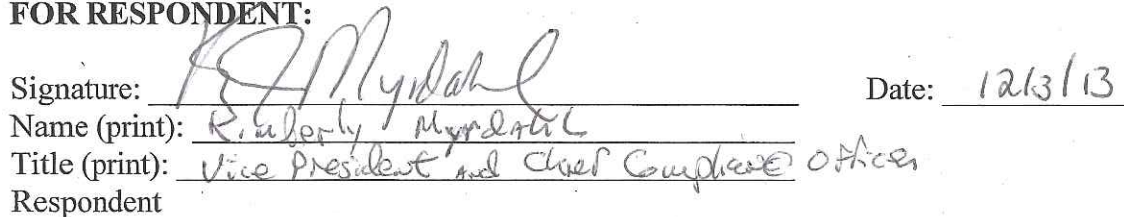 FOR RESPONDENT:
Signature: K J Myrdahl Date: 12/3/13
Name (print): Kimberly Myrdahl
Title (print): Vice President and Chief Compliance Officer
Respondent